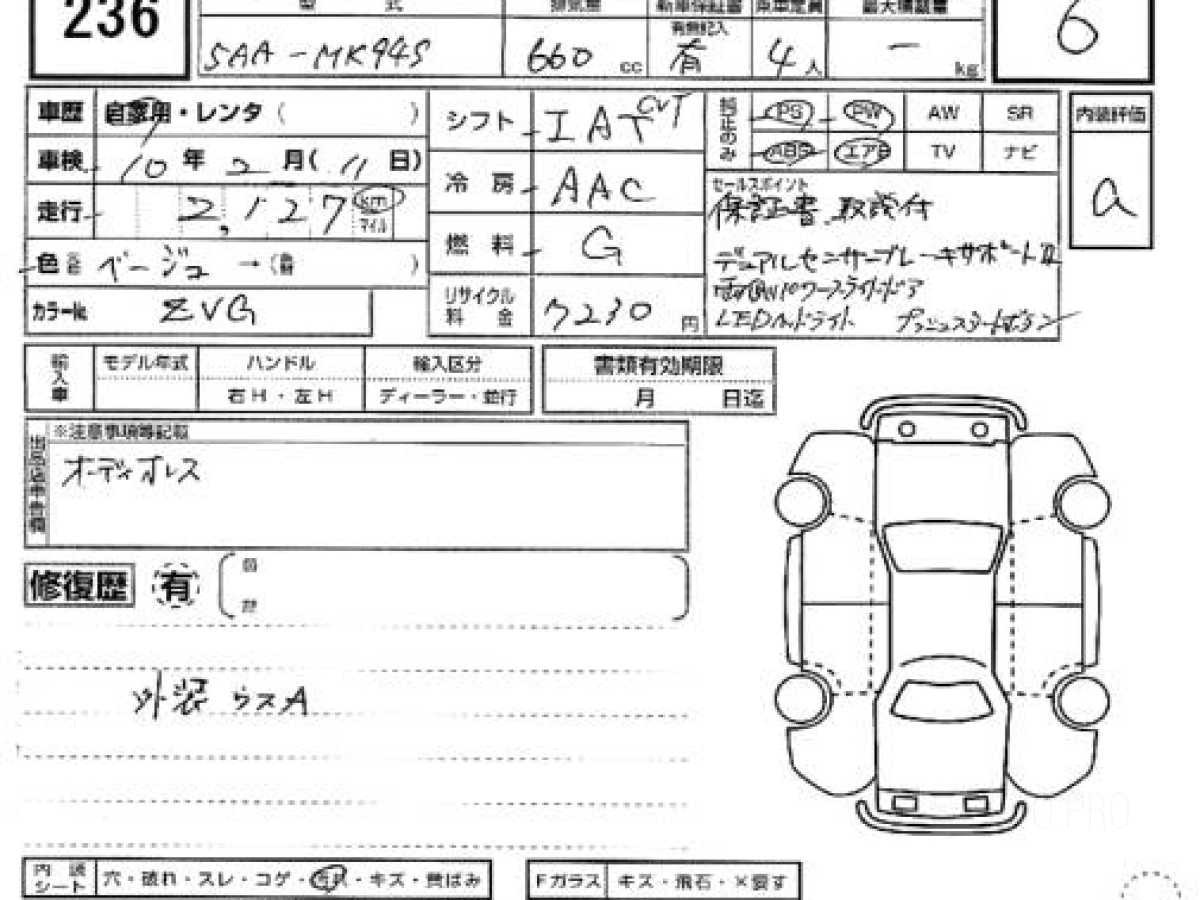 236
型式 排気量 新車保証書 乗車定員 最大積載量
有無記入
5AA-MK94S 660 cc 有 4人 - kg 6
車歴 自家用・レンタ( )
車検 10年2月(11日)
走行 2,127 km マイル
色 ベージュ →( )
カラーNo. ZVG
シフト IAT CVT
冷房 AAC
燃料 G
リサイクル料金 7230 円
純正のみ PS PW AW SR
ABS エアB TV ナビ
内装評価
a
セールスポイント
保証書、取説付
デュアルセンサーブレーキサポートⅡ
両側パワースライドドア
LEDヘッドライト プッシュスタートボタン
輸入車 モデル年式 ハンドル 輸入区分
右H・左H ディーラー・並行
書類有効期限
月 日迄
※注意事項等記載
オーディオレス
修復歴 有
外装 ウスA
内張シート 穴・破れ・スレ・コゲ・汚れ・キズ・黄ばみ
Fガラス キズ・飛石・×要す